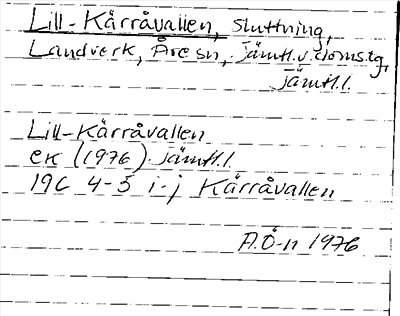 Lill-Kårråvallen, sluttning,
Landverk, Åre sn, jämtl.v.doms.tg,
jämtl.l.
Lill-Kårråvallen
EK (1976) jämtl.l.
19C 4-5 i-j Kårråvallen
A.Ö-n 1976